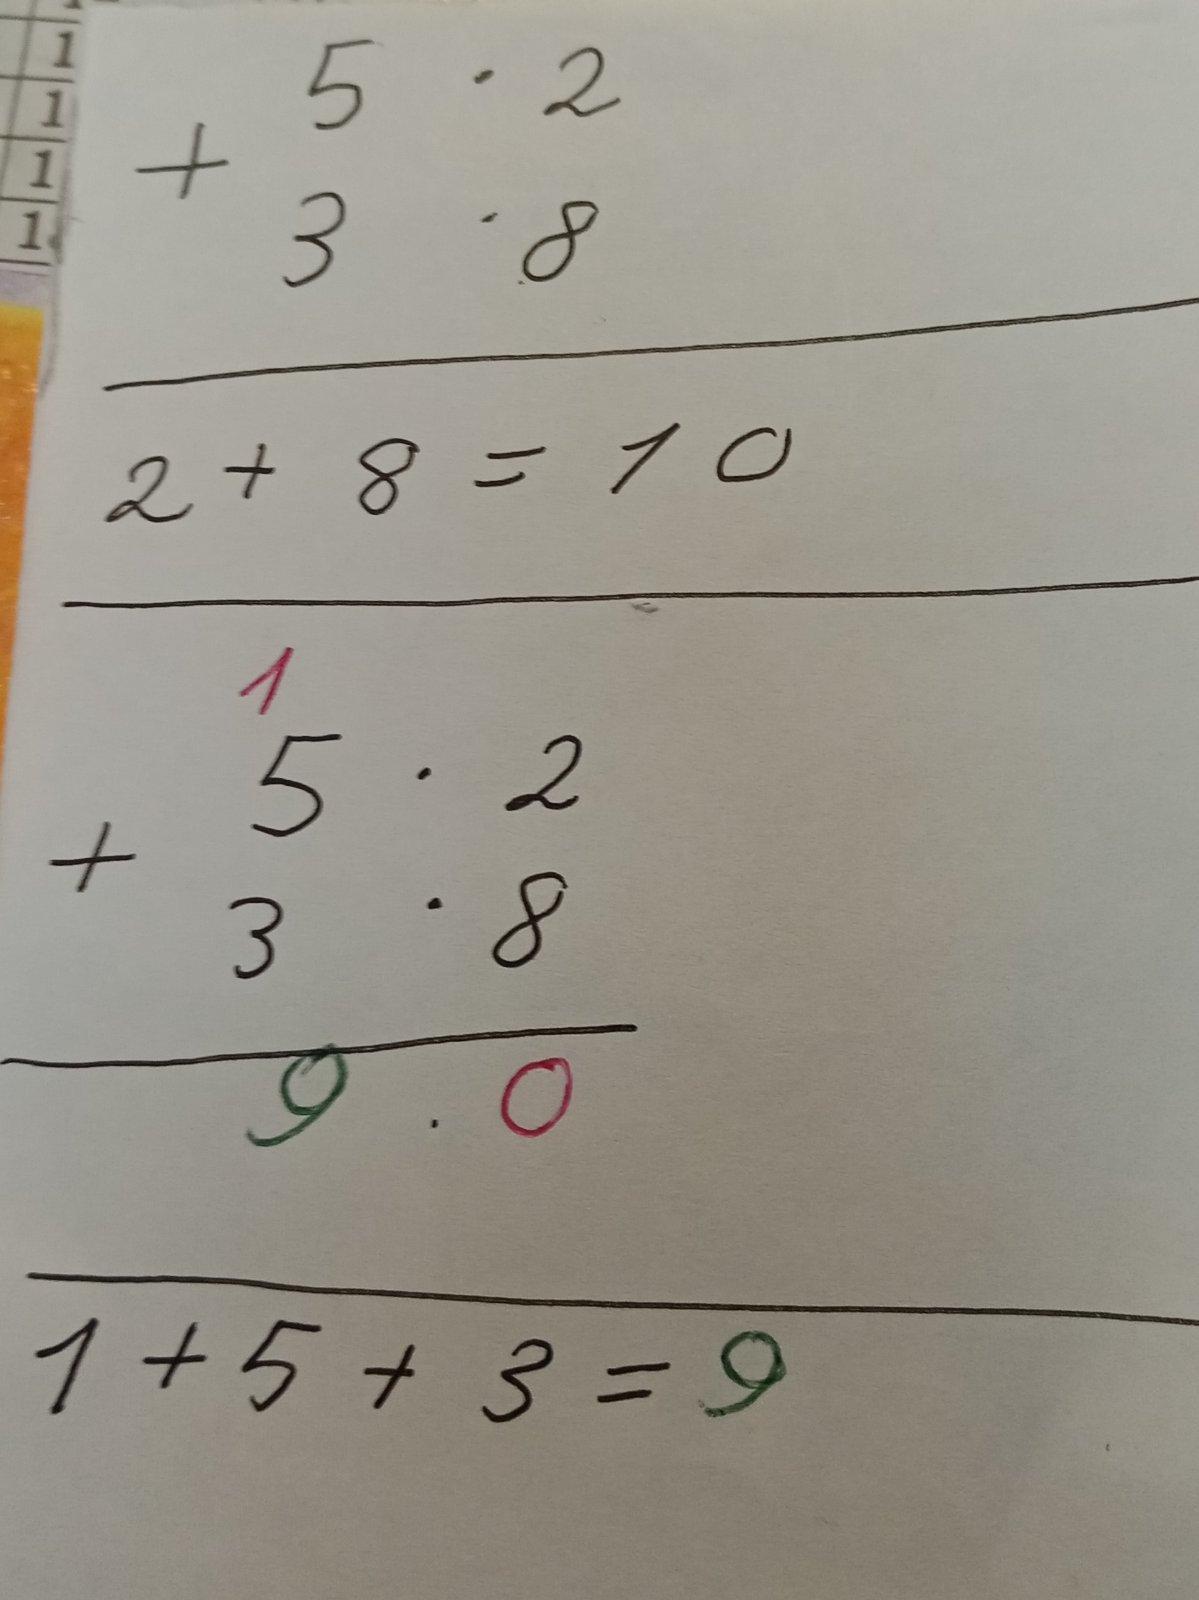 1
1
1
1
5 · 2
+
3 · 8
2 + 8 = 10
1
5 · 2
+
3 · 8
9 . 0
1 + 5 + 3 = 9